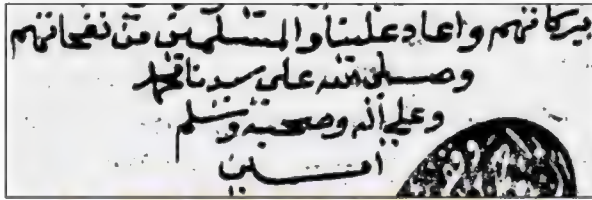 ببركاتهم واعاد علينا والمسلمين من نفحاتهم
وصلى الله على سيدنا محمد
وعلى اله وصحبه وسلم
امين